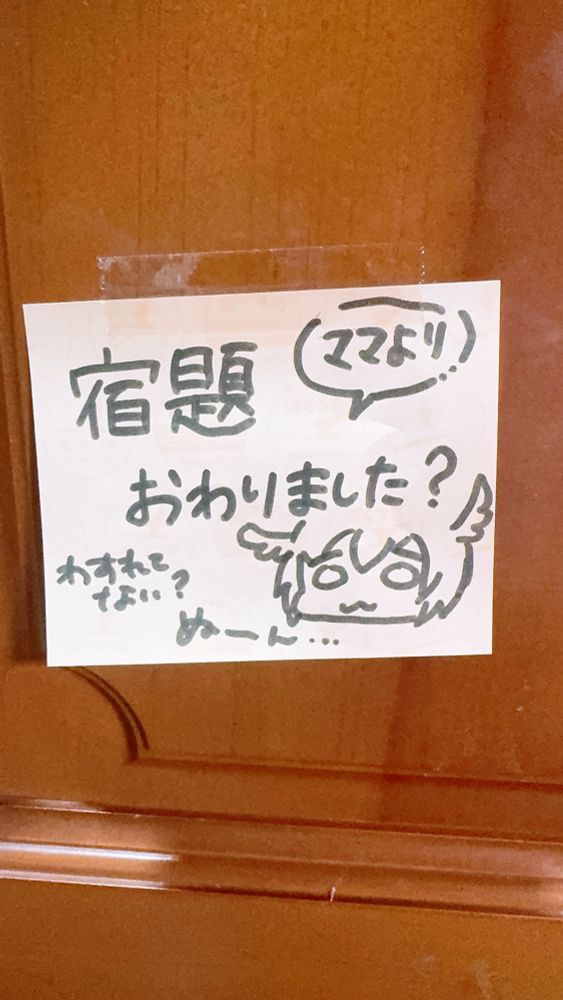 ママより
宿題
おわりました?
わすれて
ない?
ぬーん...